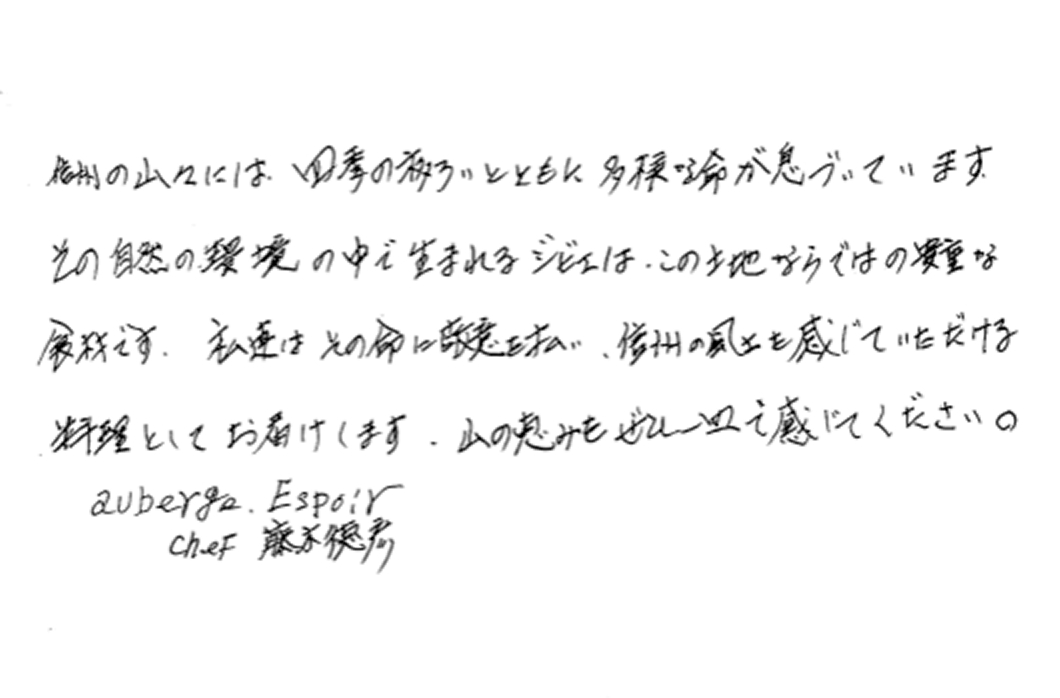 信州の山々には、四季の移ろいとともに多様な命が息づいています。
その自然の環境の中で生まれるジビエは、この土地ならではの貴重な
食材です。私達はその命に敬意を払い、信州の風土を感じていただける
料理としてお届けします。山の恵みをぜひ一皿で感じてください。
auberge. Espoir
chef 藤木徳彦